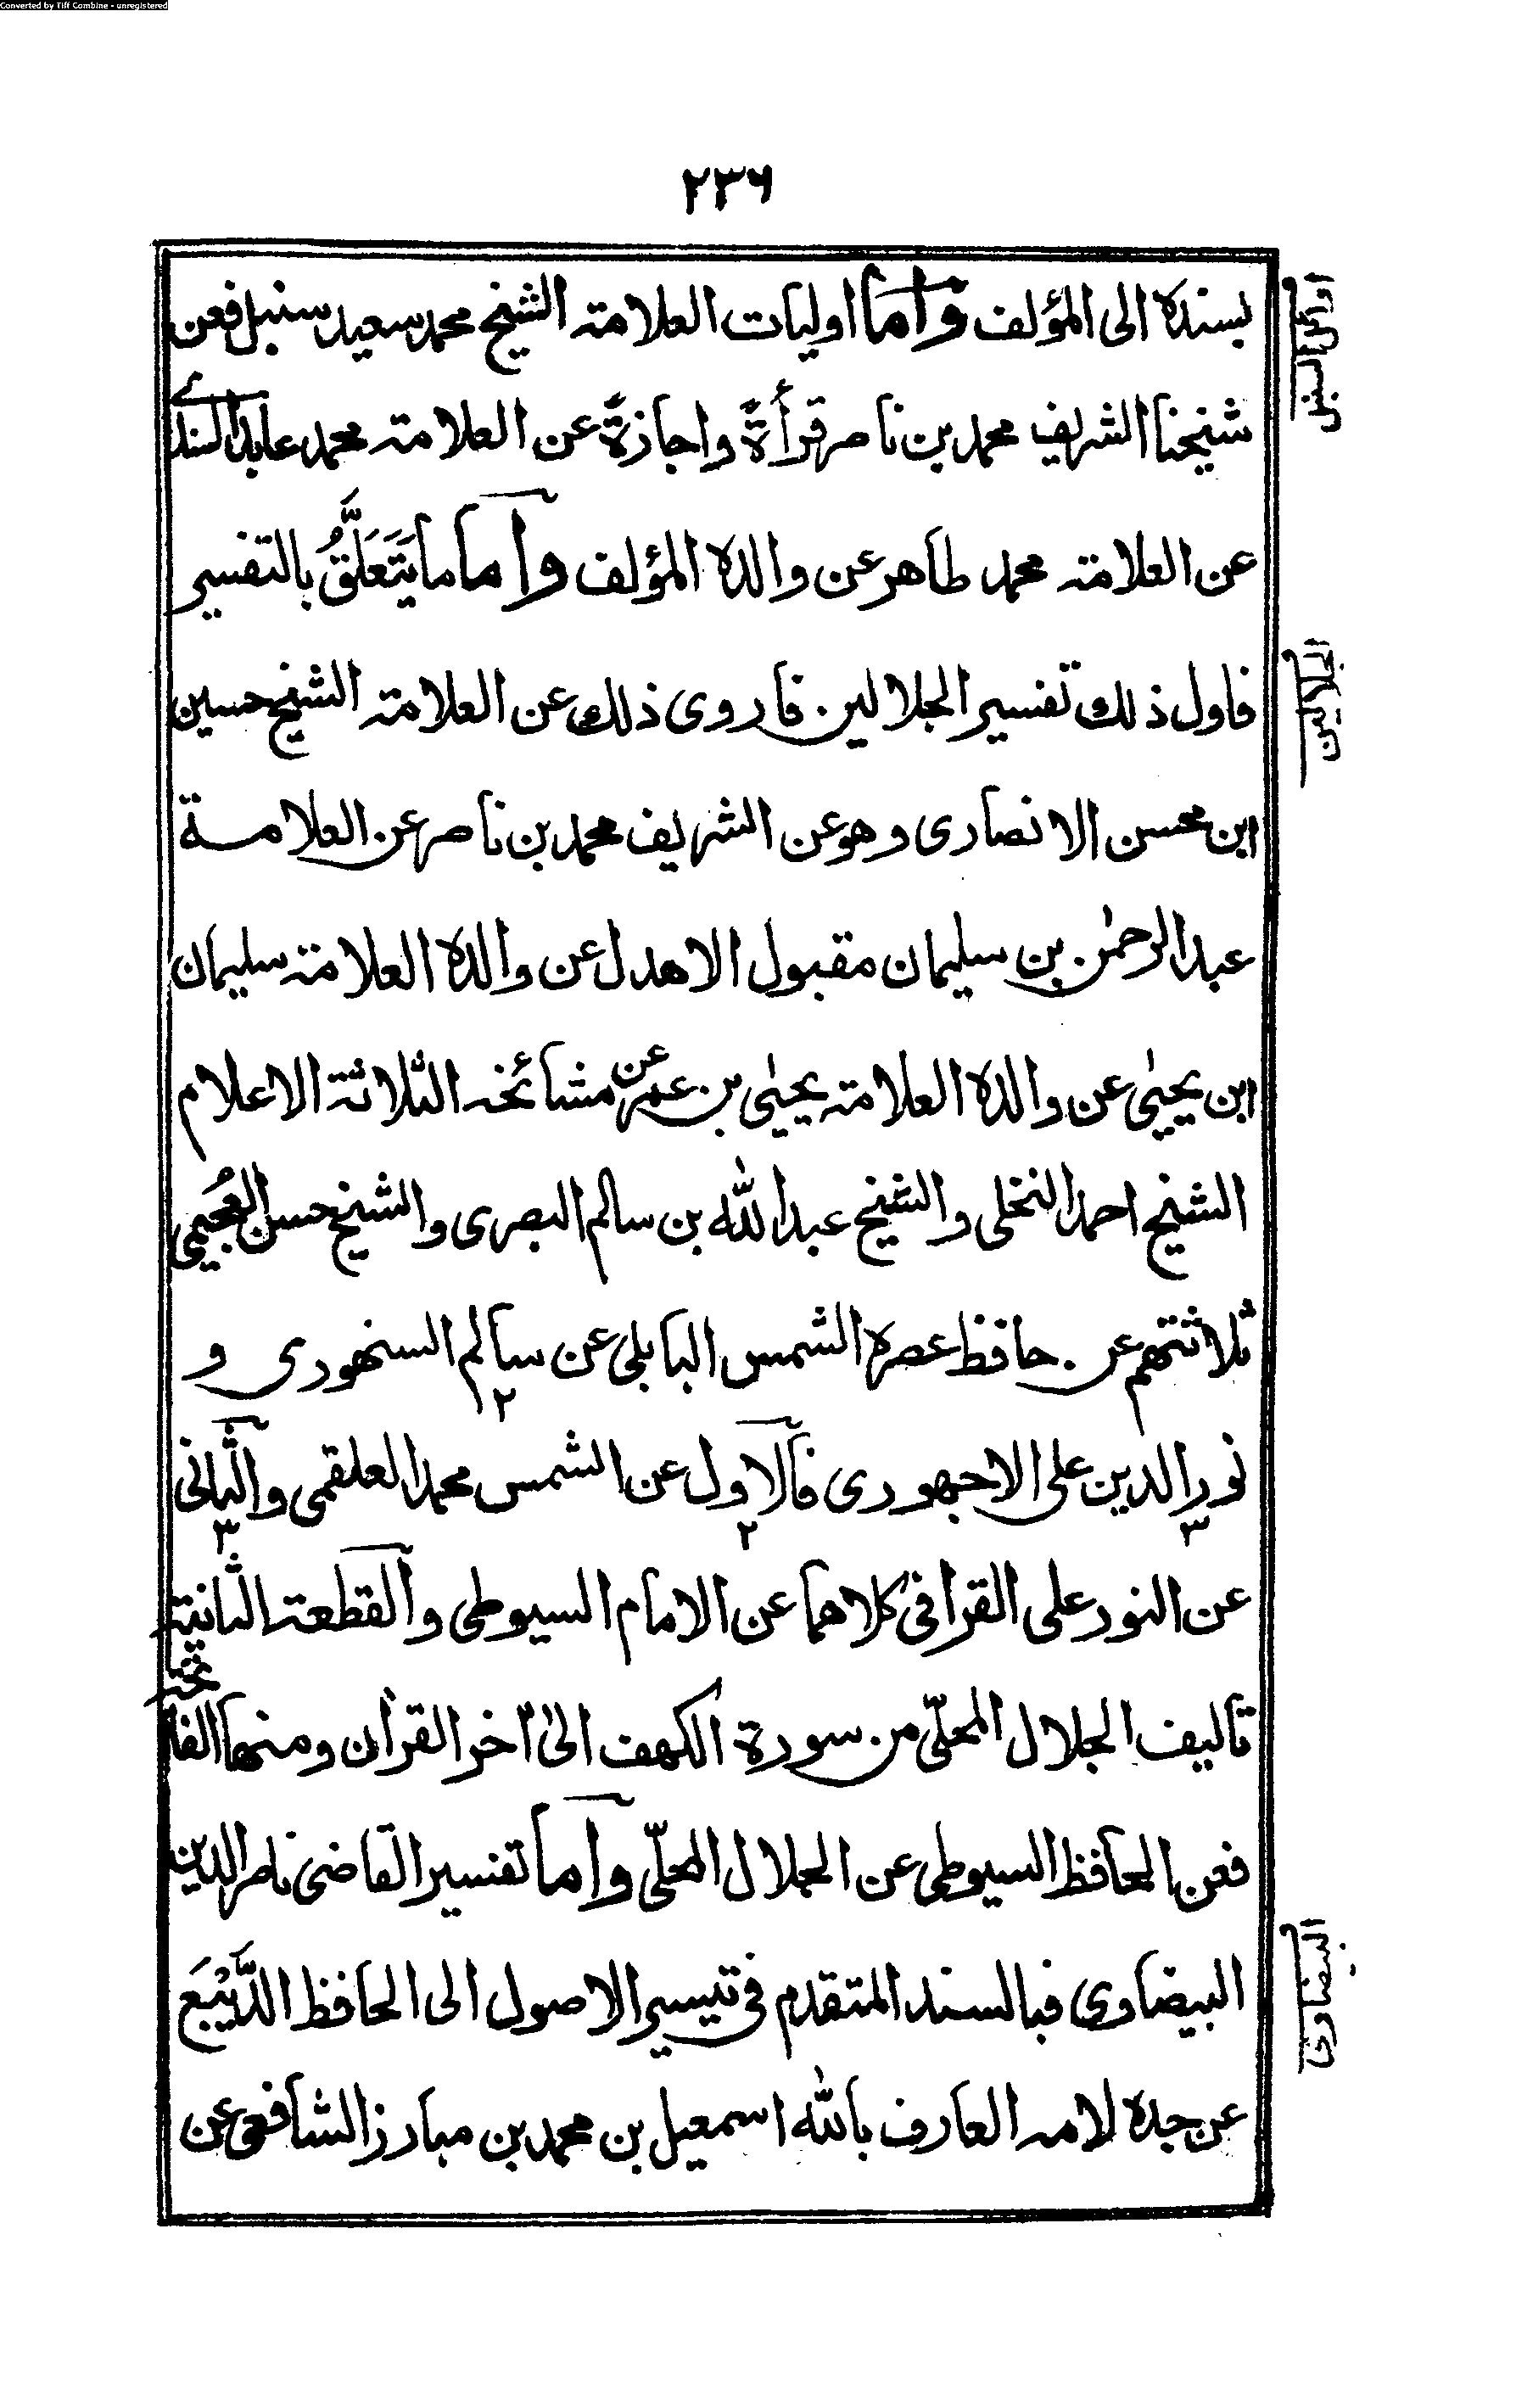 Converted by Tiff Combine - unregistered
٢٣٦
بسنده الى المؤلف وأما اوليات العلامة الشيخ محمد سعيد سنبل فعن
اوائل السنبل
شيخنا الشريف محمد بن ناصر قرأةً واجازةً عن العلامة محمد عابد السندے
عن العلامة محمد طاهر عن والده المؤلف وأما ما يَتَعَلَّقُ بالتفسير
فاول ذلك تفسير الجلالين فاروى ذلك عن العلامة الشيخ حسين
الجلالين
ابن محسن الانصارى وهو عن الشريف محمد بن ناصر عن العلامة
عبدالرحمٰن بن سليمان مقبول الاهدل عن والده العلامة سليمان
ابن يحيٰى عن والده العلامة يحيٰى بن عمر عن مشائخه الثلاثة الاعلام
الشيخ احمد النخلى والشيخ عبدالله بن سالم البصرى والشيخ حسن العُجَيمى
ثلاثتهم عن حافظ عصره الشمس البابلى عن سالم السنهورى و
٢
نور الدين على الاجهورى فالاول عن الشمس محمد العلقمى والثانى
٣ ٢ ٣
عن النور على القرافى كلاهما عن الامام السيوطى والقطعة الثانية
تأليف الجلال المحلّى من سورة الكهف الىٰ اٰخر القراٰن ومنها الفاتحة
فعن الحافظ السيوطى عن الجلال المحلّى وأما تفسير القاضى ناصر الدين
البيضاوى فبالسند المتقدم فى تيسير الاصول الى الحافظ الدَّيْبَع
البيضاوى
عن جده لامه العارف بالله اسمعيل بن محمد بن مبارز الشافعى عن